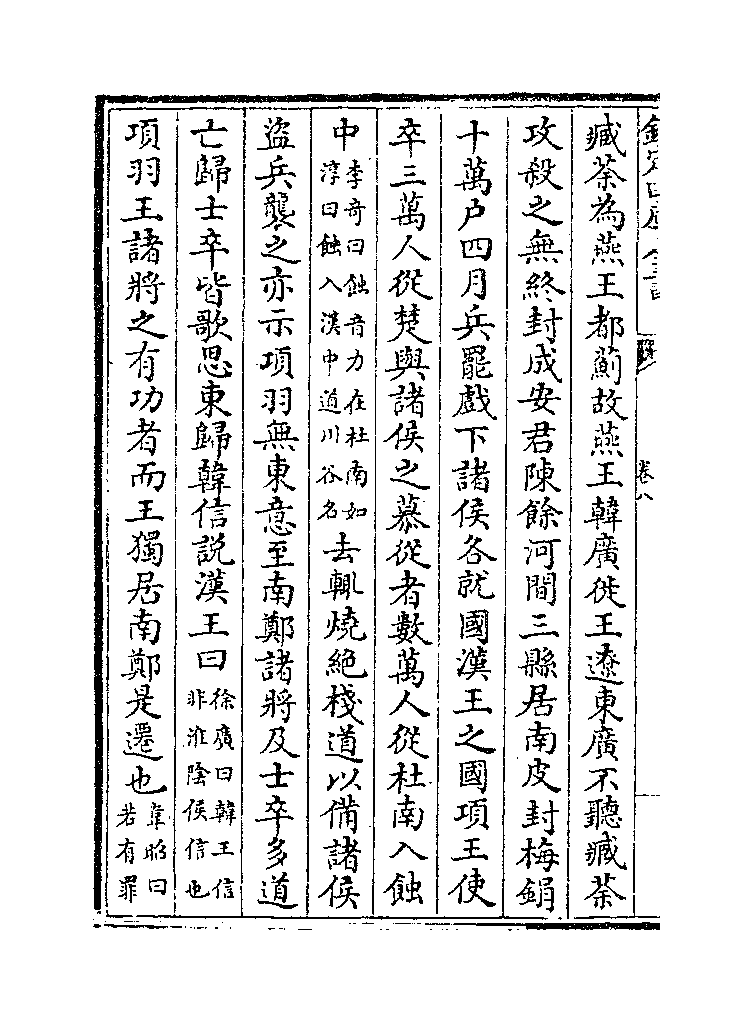 欽定四庫全書
卷八
臧荼為燕王都薊故燕王韓廣徙王遼東廣不聽臧荼
攻殺之無終封成安君陳餘河間三縣居南皮封梅鋗
十萬户四月兵罷戲下諸侯各就國漢王之國項王使
卒三萬人從楚與諸侯之慕從者數萬人從杜南入蝕
中李奇曰蝕音力在杜南如淳曰蝕入漢中道川谷名去輒燒絶棧道以備諸侯
盜兵襲之亦示項羽無東意至南鄭諸將及士卒多道
亡歸士卒皆歌思東歸韓信説漢王曰徐廣曰韓王信非淮陰侯信也
項羽王諸將之有功者而王獨居南鄭是遷也韋昭曰若有罪